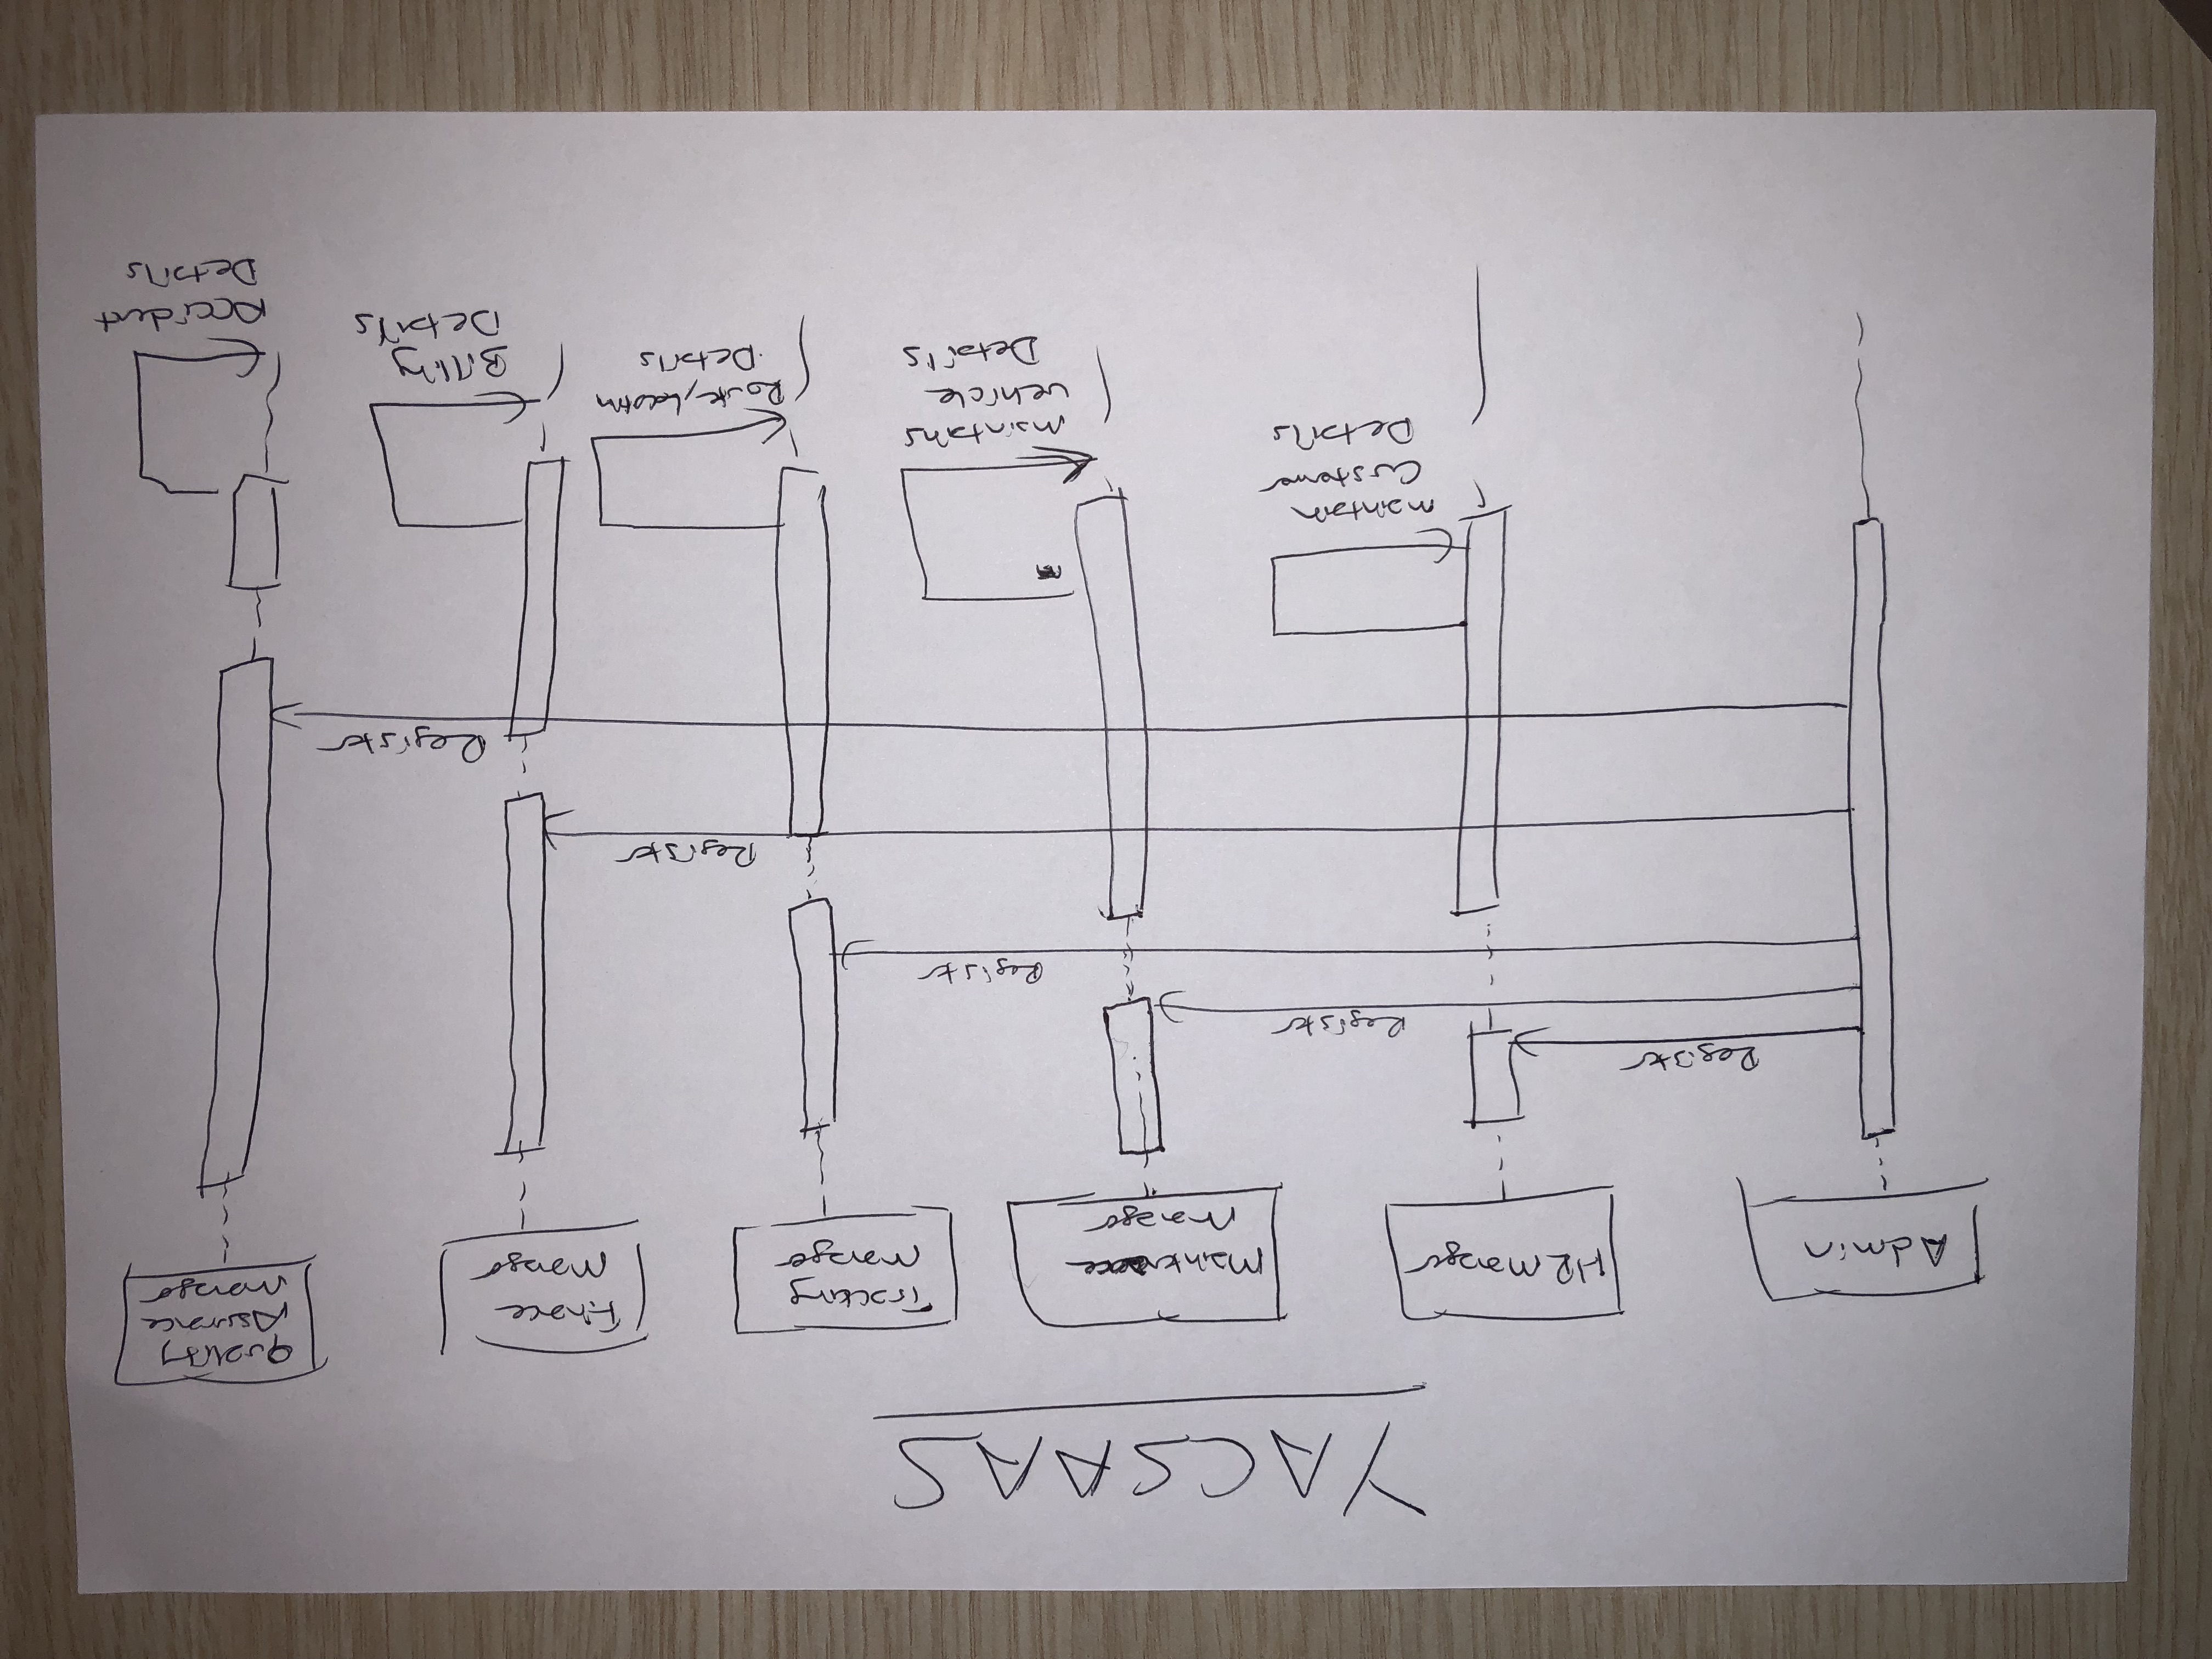 YACSAAS
Admin
HR Manager
Maintenance
Manager
Tracking
Manager
Finace
Manager
Quality
Assurance
Manager
Register
Register
Register
Register
Register
maintain
Customer
Details
Maintains
vehicle
Details
Route, Location
Details
Billing
Details
Accident
Details